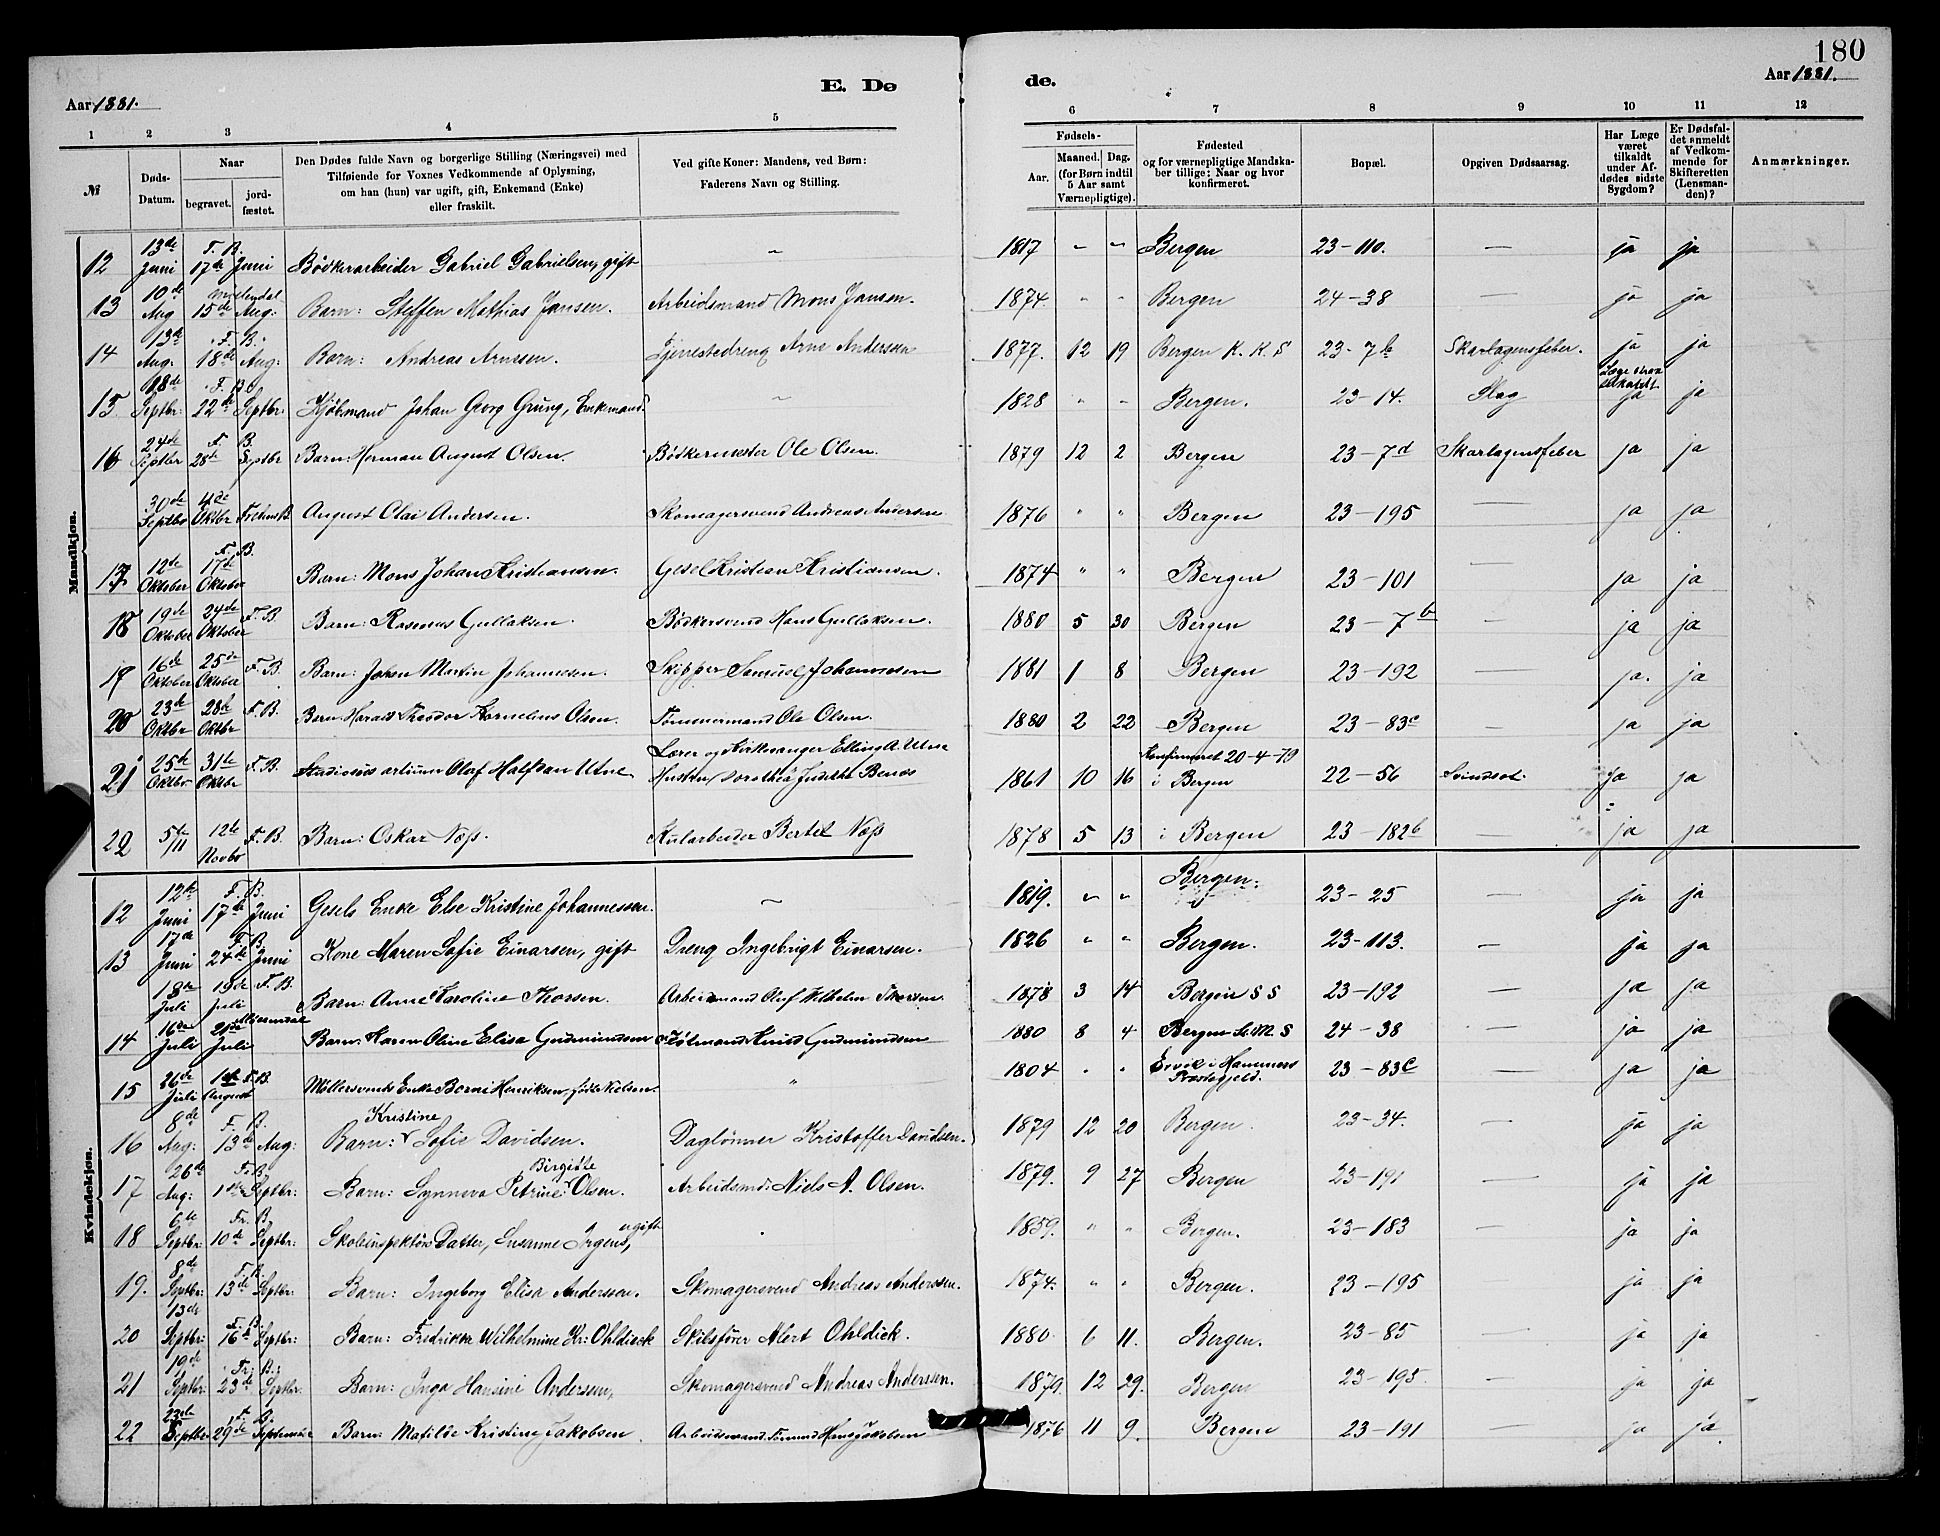 180
Aar 1881.
E. Dø
de.
Aar 1881.
1 2 3 4 5 6 7 8 9 10 11 12
№
Døds-Datum.
Naar
begravet.
jord-fæstet.
Den Dødes fulde Navn og borgerlige Stilling (Næringsvei) med
Tilføiende for Voxnes Vedkommende af Oplysning,
om han (hun) var ugift, gift, Enkemand (Enke)
eller fraskilt.
Ved gifte Koner: Mandens, ved Børn:
Faderens Navn og Stilling.
Fødsels-
Aar.
Maaned. Dag.
(for Børn indtil
5 Aar samt
Værnepligtige).
Fødested
og for værnepligtige Mandska-
ber tillige: Naar og hvor
konfirmeret.
Bopæl.
Opgiven Dødsaarsag.
Har Læge
været
tilkaldt
under Af-
dødes sidste
Sygdom?
Er Dødsfal-
det anmeldt
af Vedkom-
mende for
Skifteretten
(Lensman-
den)?
Anmærkninger.
Mandkjøn.
12 13de Juni F. B. 17de Juni Bödkerarbeider Gabriel Gabrielsen, gift ~ 1817 " " Bergen 23-110. — ja ja
13 10de Aug Möllendal 15de Aug: Barn: Steffen Mathias Jansen. Arbeidsmand Mons Jansen. 1874. " " Bergen 24-38 — ja ja
14 13de Aug. F. B. 18de Aug: Barn: Andreas Arnesen. Tjenestedreng Arne Andersen 1877. 12 19 Bergen K. K. S 23-7b Skarlagensfeber. ja ja
15 18de Septbr: F. B. 22de Septbr: Kjöbmand Johan Georg Grung, Enkemand. ~ 1828 " " Bergen. 23-14. Slag ja ja
16 24de Septbr F. B. 28de Septbr Barn: Herman August Olsen. Bödkermester Ole Olsen. 1879 12 2 Bergen 23-7d Skarlagensfeber ja ja
30de Septbr 4de Oktbr August Olai Andersen. Skomagersvend Andreas Andersen 1876 " " Bergen 23-195 — ja ja
17 12de Oktober F. B. 17de Oktober Barn: Mons Johan Kristiansen. Gesel Kristian Kristiansen. 1874 " " Bergen 23-101 — ja ja
18 19de Oktober 24de Oktober F. B. Barn: Rasmus Gullaksen. Bödkersvend Hans Gullaksen. 1880 5 30 Bergen 23-7b — ja ja
19 16de Oktober 25de Oktober F. B. Barn: Johan Martin Johannesen. Skipper Samuel Johannesen 1881 1 8 Bergen 23-192 — ja. ja
20 23de Oktbr 28de Oktbr F. B. Barn Harald Theodor Kornelius Olsen. Tömmermand Ole Olsen. 1880 2 22 Bergen 23-83c — ja ja
21 25de Oktbr 31te Oktbr F. B. Studiosus artium Olaf Halfdan Utne Lærer og Kirkesanger Elling A. Utne 1861 10 16 Konfirmeret 20-4-79 i Bergen 22-56 Svindsot. ja ja
22 5te/11 12te Novbr F. B. Barn: Oskar Næss. Kularbeider Bertel Næss 1878 5 13 i Bergen 23-182b — ja ja
Kvindekjøn.
12 12te Juni F. B. 17de Juni Gesels Enke Else Kristine Johannessen. ~ 1819. " " Bergen. 23-25 — ja ja
13 17de Juni F. B. 24de Juni Kone Maren Sofie Einarsen, gift Dreng Ingebrigt Einarsen. 1826 " " Bergen. 23-113. — ja ja
18de Juli 19de Juli F. B. Barn: Anne Karoline Thorsen. Arbeidsmand Oluf Vilhelm Thorsen. 1878 3 14 Bergen S S 23-192 — ja ja
14 16de Juli Juli Barn: Karen Oline Elisa Gudmundsen Gudmundsen 1880 8 4 Bergen St. M. S 24-38 — ja ja
15 26de Juli August F. B. Möllersvends Enke Henriksen, født Nilsen. " 1804 " " Ervik i Hammers Præstegjeld. 23-83c — ja ja
16 8de Aug: F. B. 13de Aug: Barn: Kristine Sofie Davidsen. Daglönner Kristoffer Davidsen. 1879 12 20 Bergen. 23-34. — ja ja
17 26de Aug: F. B. 1ste Septbr: Barn: Synneva Petrine Birgitte Olsen. Arbeidsmd. Niels A. Olsen. 1879. 9 27 Bergen 23-191 — ja ja
18 6te Septbr: Fr. B. 10de Septbr: Skoleinspektörs Datter, Susanne Irgens, ugift . 1859. " " Bergen. 23-183 — ja ja
19. 8de Septbr: F. B. 13de Septbr: Barn: Ingeborg Elisa Andersen. Skomagersvend Andreas Anderssen. 1874. " " Bergen. 23-195 — ja ja
20 13de Septbr: F. B. 16de Septbr: Barn: Fredrikke Wilhelmine Kr: Ohldieck Skibsförer Alert Ohldick. 1880. 6 11. Bergen. 23-85 — ja ja
21 19de Septbr: Fr: B: 23de Septbr: Barn: Inga Hansine Andersen, Skomagersvend Andreas Andersen. 1879. 12 29. Bergen 23-195. — ja ja
22 23de Septbr 29de September Barn: Matilde Kristine Jakobsen. Arbeidsmand Hans Jakobsen 1876 11 9. Bergen 23-191 — ja ja.